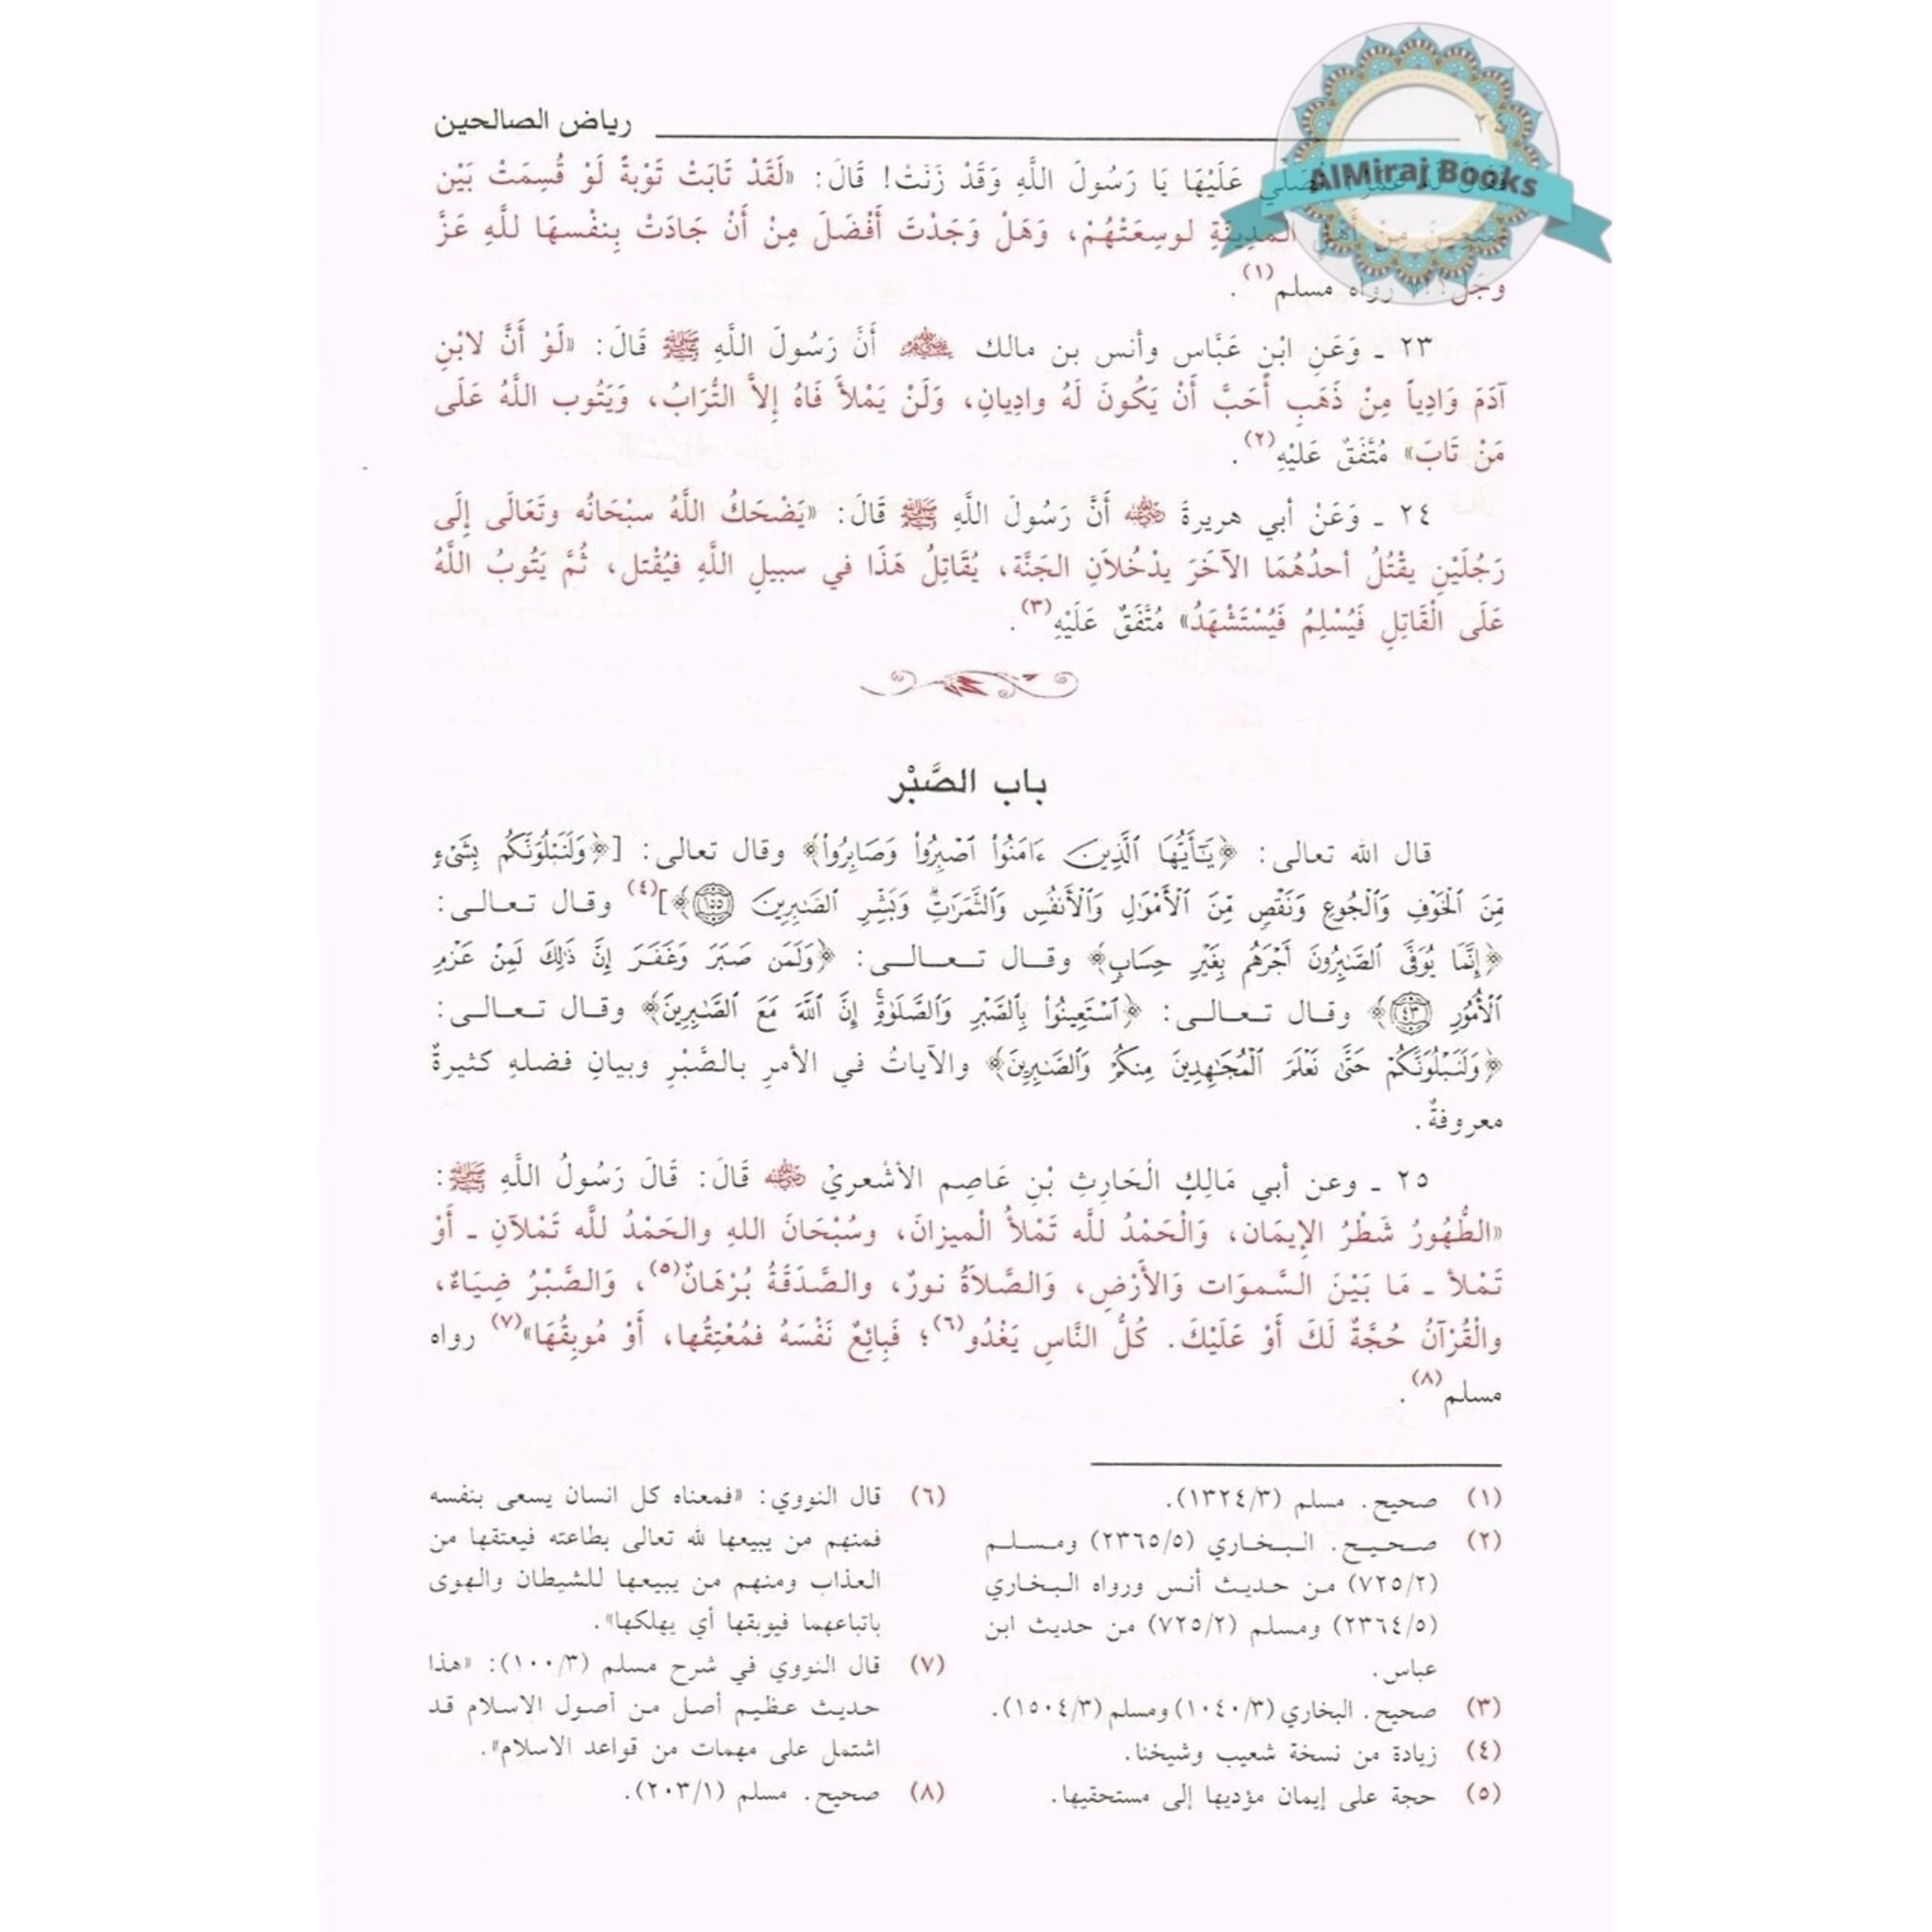 رياض الصالحين
AlMiraj Books
عَلَيْهَا يَا رَسُولَ اللَّهِ وَقَدْ زَنَتْ! قَالَ: «لَقَدْ تَابَتْ تَوْبةً لَوْ قُسِمَتْ بَيْن
الْمَدِينَةِ لوسِعَتْهُمْ، وَهَلْ وَجَدْتَ أَفْضَلَ مِنْ أَنْ جَادَتْ بِنفْسهَا للَّهِ عَزَّ
وجَل؟!» رواه مسلم(١).
٢٣ ـ وَعَنِ ابْنِ عَبَّاس وأنس بن مالك رضي الله عنهم أَنَّ رَسُولَ اللَّهِ ﷺ قَالَ: «لَوْ أَنَّ لابْنِ
آدَمَ وَادِياً مِنْ ذَهَبٍ أَحَبَّ أَنْ يَكُونَ لَهُ وادِيانِ، وَلَنْ يَمْلأَ فَاهُ إِلاَّ التُّرَابُ، وَيَتُوب اللَّهُ عَلَى
مَنْ تَابَ» مُتَّفَقٌ عَليْهِ(٢).
٢٤ ـ وَعَنْ أبي هريرةَ رضي الله عنه أَنَّ رَسُولَ اللَّهِ ﷺ قَالَ: «يَضْحَكُ اللَّهُ سبْحَانُه وتَعَالَى إِلَى
رَجُلَيْنِ يقْتُلُ أحدُهُمَا الآخَرَ يدْخُلاَنِ الجَنَّة، يُقَاتِلُ هَذَا في سبيلِ اللَّهِ فيُقْتل، ثُمَّ يَتُوبُ اللَّهُ
عَلَى الْقَاتِلِ فَيُسْلِمُ فَيُسْتَشْهَدُ» مُتَّفَقٌ عَلَيْهِ(٣).
باب الصَّبْر
قال الله تعالى: ﴿يَـٰٓأَيُّهَا ٱلَّذِينَ ءَامَنُوا۟ ٱصْبِرُوا۟ وَصَابِرُوا۟﴾ وقال تعالى: [﴿وَلَنَبْلُوَنَّكُم بِشَىْءٍ
مِّنَ ٱلْخَوْفِ وَٱلْجُوعِ وَنَقْصٍ مِّنَ ٱلْأَمْوَٰلِ وَٱلْأَنفُسِ وَٱلثَّمَرَٰتِ ۗ وَبَشِّرِ ٱلصَّـٰبِرِينَ ١٥٥﴾](٤) وقال تعالى:
﴿إِنَّمَا يُوَفَّى ٱلصَّـٰبِرُونَ أَجْرَهُم بِغَيْرِ حِسَابٍ﴾ وقال تعالى: ﴿وَلَمَن صَبَرَ وَغَفَرَ إِنَّ ذَٰلِكَ لَمِنْ عَزْمِ
ٱلْأُمُورِ ٤٣﴾ وقال تعالى: ﴿ٱسْتَعِينُوا۟ بِٱلصَّبْرِ وَٱلصَّلَوٰةِ ۚ إِنَّ ٱللَّهَ مَعَ ٱلصَّـٰبِرِينَ﴾ وقال تعالى:
﴿وَلَنَبْلُوَنَّكُمْ حَتَّىٰ نَعْلَمَ ٱلْمُجَـٰهِدِينَ مِنكُمْ وَٱلصَّـٰبِرِينَ﴾ والآياتُ في الأمرِ بالصَّبْرِ وبيانِ فضلهِ كثيرةٌ
معروفةٌ.
٢٥ ـ وعن أبي مَالِكٍ الْحَارِثِ بْنِ عَاصِم الأشْعريِّ رضي الله عنه قَالَ: قَالَ رَسُولُ اللَّهِ ﷺ:
«الطُّهُورُ شَطْرُ الإِيمَان، وَالْحَمْدُ للَّه تَمْلأُ الْميزانَ، وسُبْحَانَ اللهِ والحَمْدُ للَّه تَمْلآنِ ـ أَوْ
تَمْلأ ـ مَا بَيْنَ السَّموَات وَالأَرْضِ، وَالصَّلاَةُ نورٌ، والصَّدَقَةُ بُرْهَانٌ(٥)، وَالصَّبْرُ ضِيَاءٌ،
والْقُرْآنُ حُجَّةٌ لَكَ أَوْ عَلَيْكَ. كُلُّ النَّاسِ يَغْدُو(٦)؛ فَبِائِعٌ نَفْسَهُ فمُعْتِقُها، أَوْ مُوبِقُهَا»(٧) رواه
مسلم(٨).
(١) صحيح. مسلم (١٣٢٤/٣).
(٢) صحيح. البخاري (٢٣٦٥/٥) ومسلم
(٧٢٥/٢) من حديث أنس ورواه البخاري
(٢٣٦٤/٥) ومسلم (٧٢٥/٢) من حديث ابن
عباس.
(٣) صحيح. البخاري (١٠٤٠/٣) ومسلم (١٥٠٤/٣).
(٤) زيادة من نسخة شعيب وشيخنا.
(٥) حجة على إيمان مؤديها إلى مستحقيها.
(٦) قال النووي: «فمعناه كل انسان يسعى بنفسه
فمنهم من يبيعها لله تعالى بطاعته فيعتقها من
العذاب ومنهم من يبيعها للشيطان والهوى
باتباعهما فيوبقها أي يهلكها».
(٧) قال النووي في شرح مسلم (١٠٠/٣): «هذا
حديث عظيم أصل من أصول الاسلام قد
اشتمل على مهمات من قواعد الاسلام».
(٨) صحيح. مسلم (٢٠٣/١).